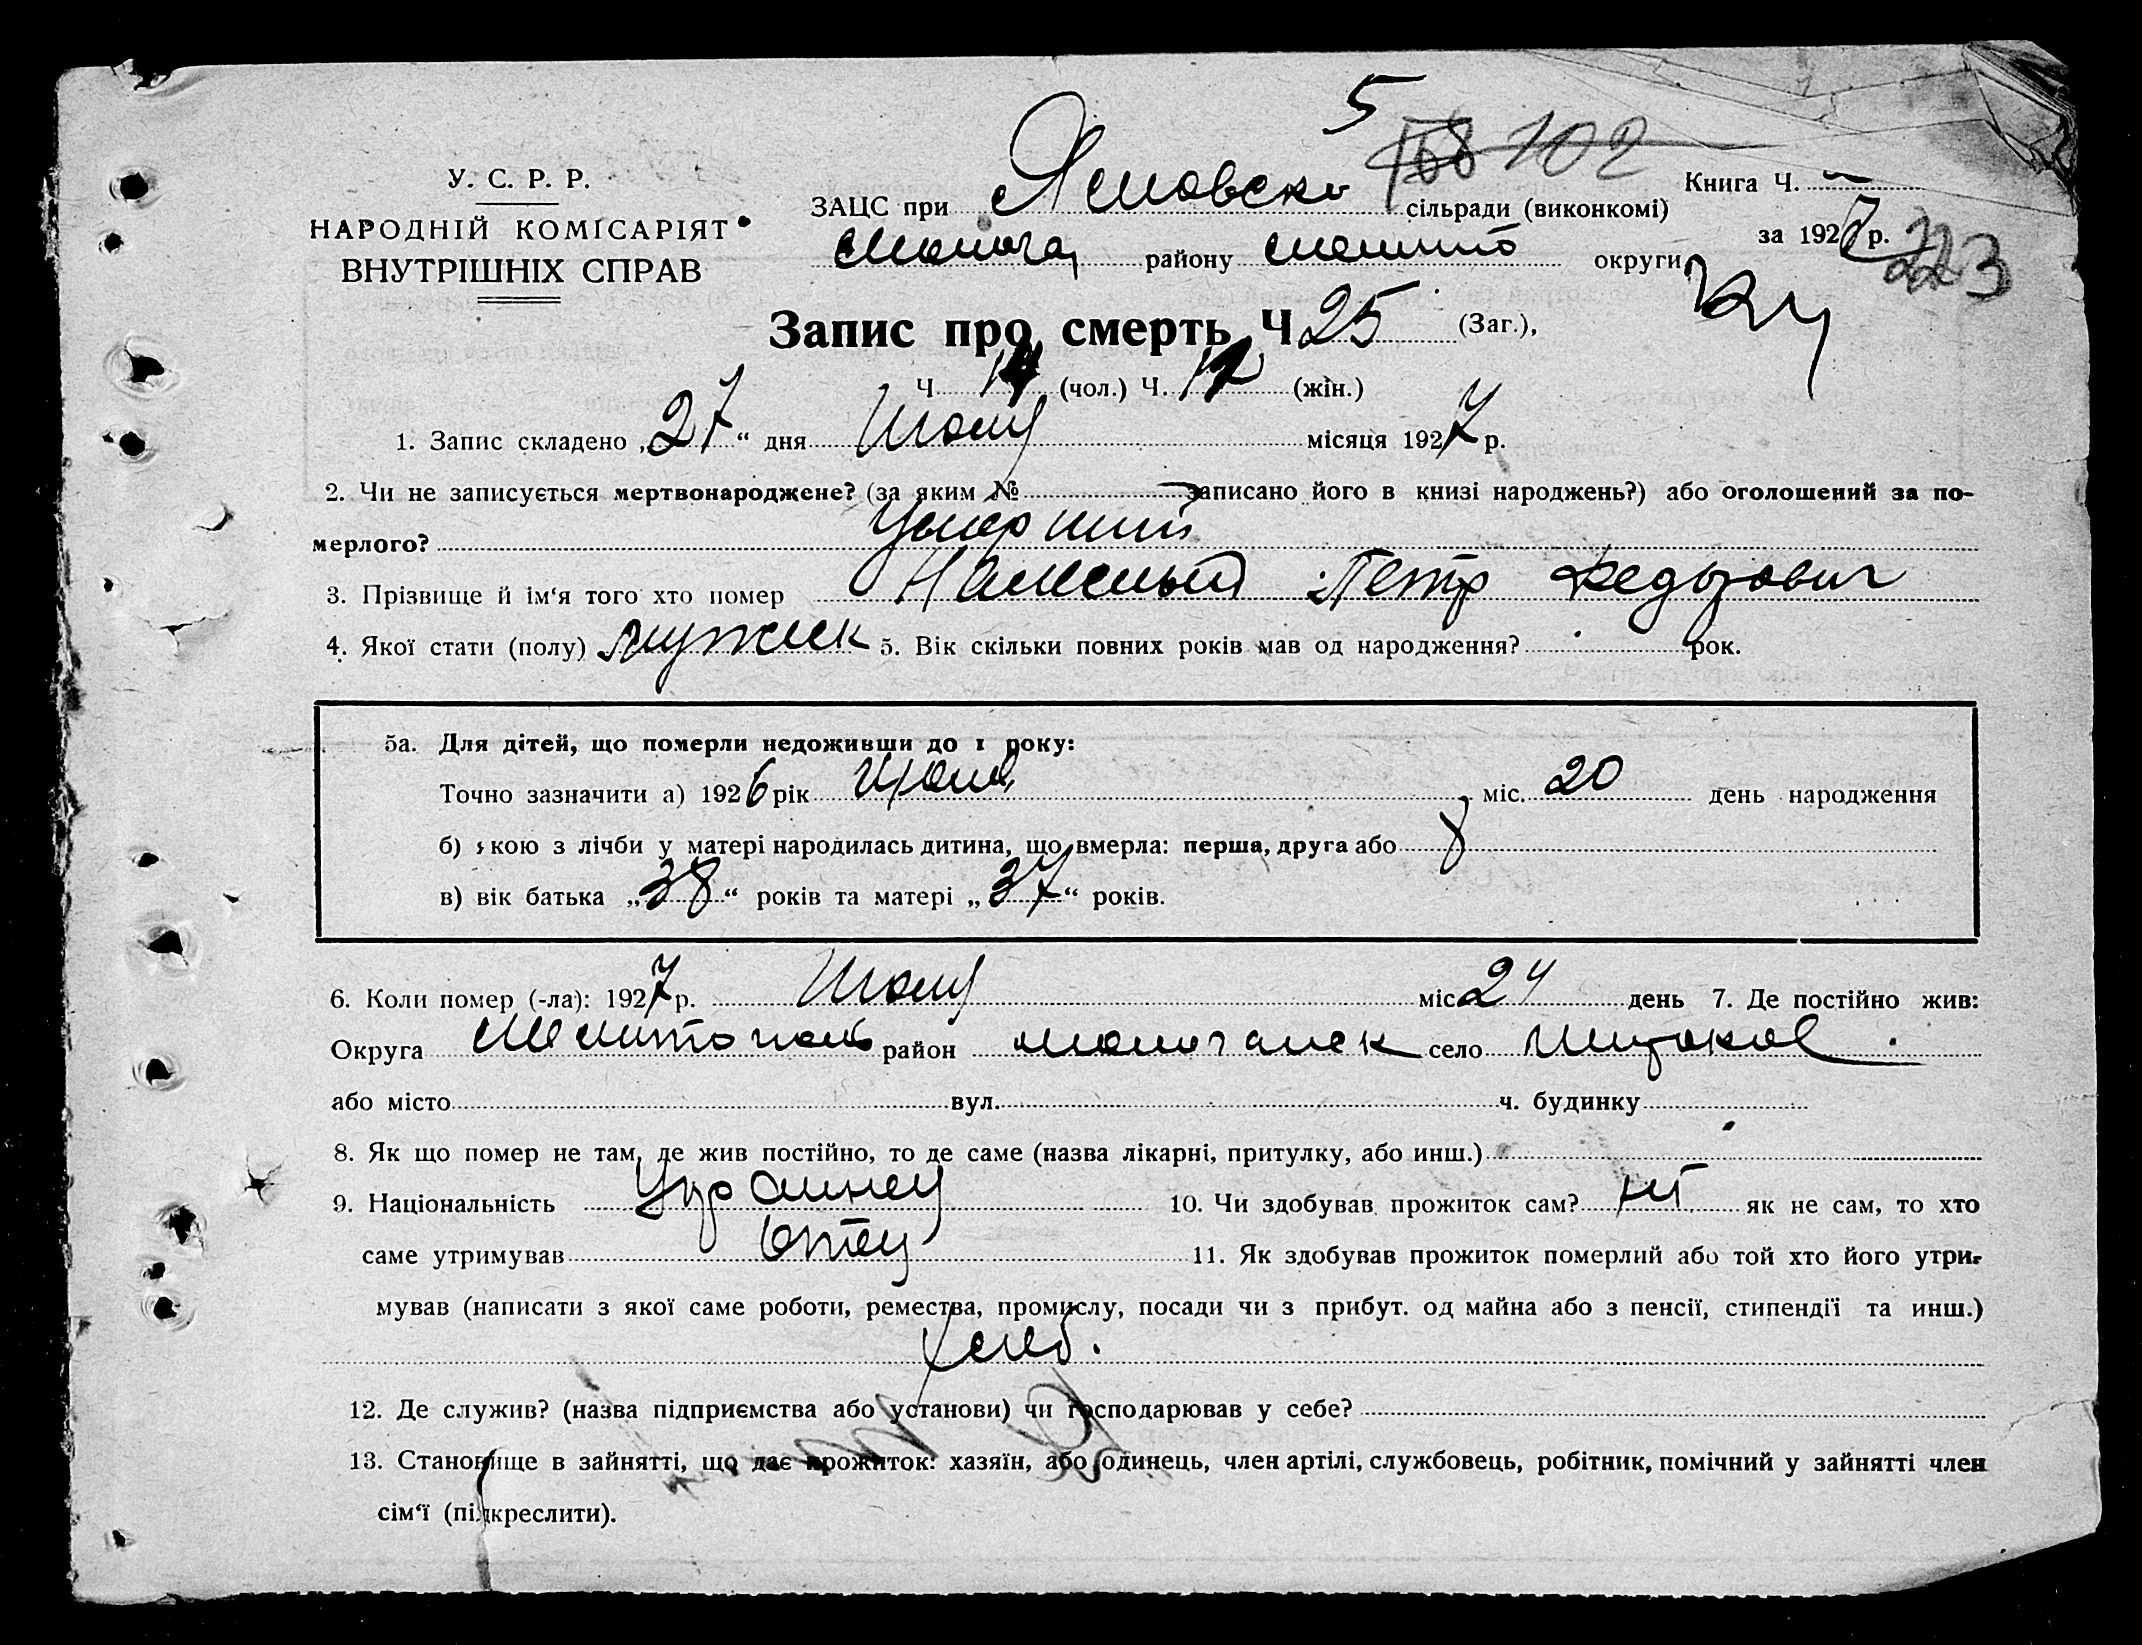 5
168 102
У. С. Р. Р.
НАРОДНІЙ КОМІСАРІЯТ
ВНУТРІШНІХ СПРАВ
ЗАЦС при сільради (виконкомі)
Книга Ч.
за 1927 р.
223
району округи
Запис про смерть Ч 25 (Заг.),
Ч 14 (чол.) Ч. 12 (жін.)
1. Запис складено „27“ дня місяця 1927 р.
2. Чи не записується мертвонароджене? (за яким № записано його в книзі народжень?) або оголошений за по-
мерлого? Умерший
3. Прізвище й ім‘я того хто помер Петр Федорович
4. Якої стати (полу) мужск 5. Вік скільки повних років мав од народження? рок.
5а. Для дітей, що померли недоживши до 1 року:
Точно зазначити а) 1926 рік міс. 20 день народження
б) якою з лічби у матері народилась дитина, що вмерла: перша, друга або 8
в) вік батька „38“ років та матері „37“ років.
6. Коли помер (-ла): 1927 р. міс 24 день 7. Де постійно жив:
Округа район село
або місто вул. ч. будинку
8. Як що помер не там, де жив постійно, то де саме (назва лікарні, притулку, або инш.)
9. Національність 10. Чи здобував прожиток сам? як не сам, то хто
саме утримував Отец 11. Як здобував прожиток померлий або той хто його утри-
мував (написати з якої саме роботи, ремества, промислу, посади чи з прибут. од майна або з пенсії, стипендії та инш.)
хлеб.
12. Де служив? (назва підприємства або установи) чи господарював у себе?
13. Становище в зайнятті, що дає прожиток: хазяїн, або одинець, член артілі, службовець, робітник, помічний у зайнятті член
сім‘ї (підкреслити).